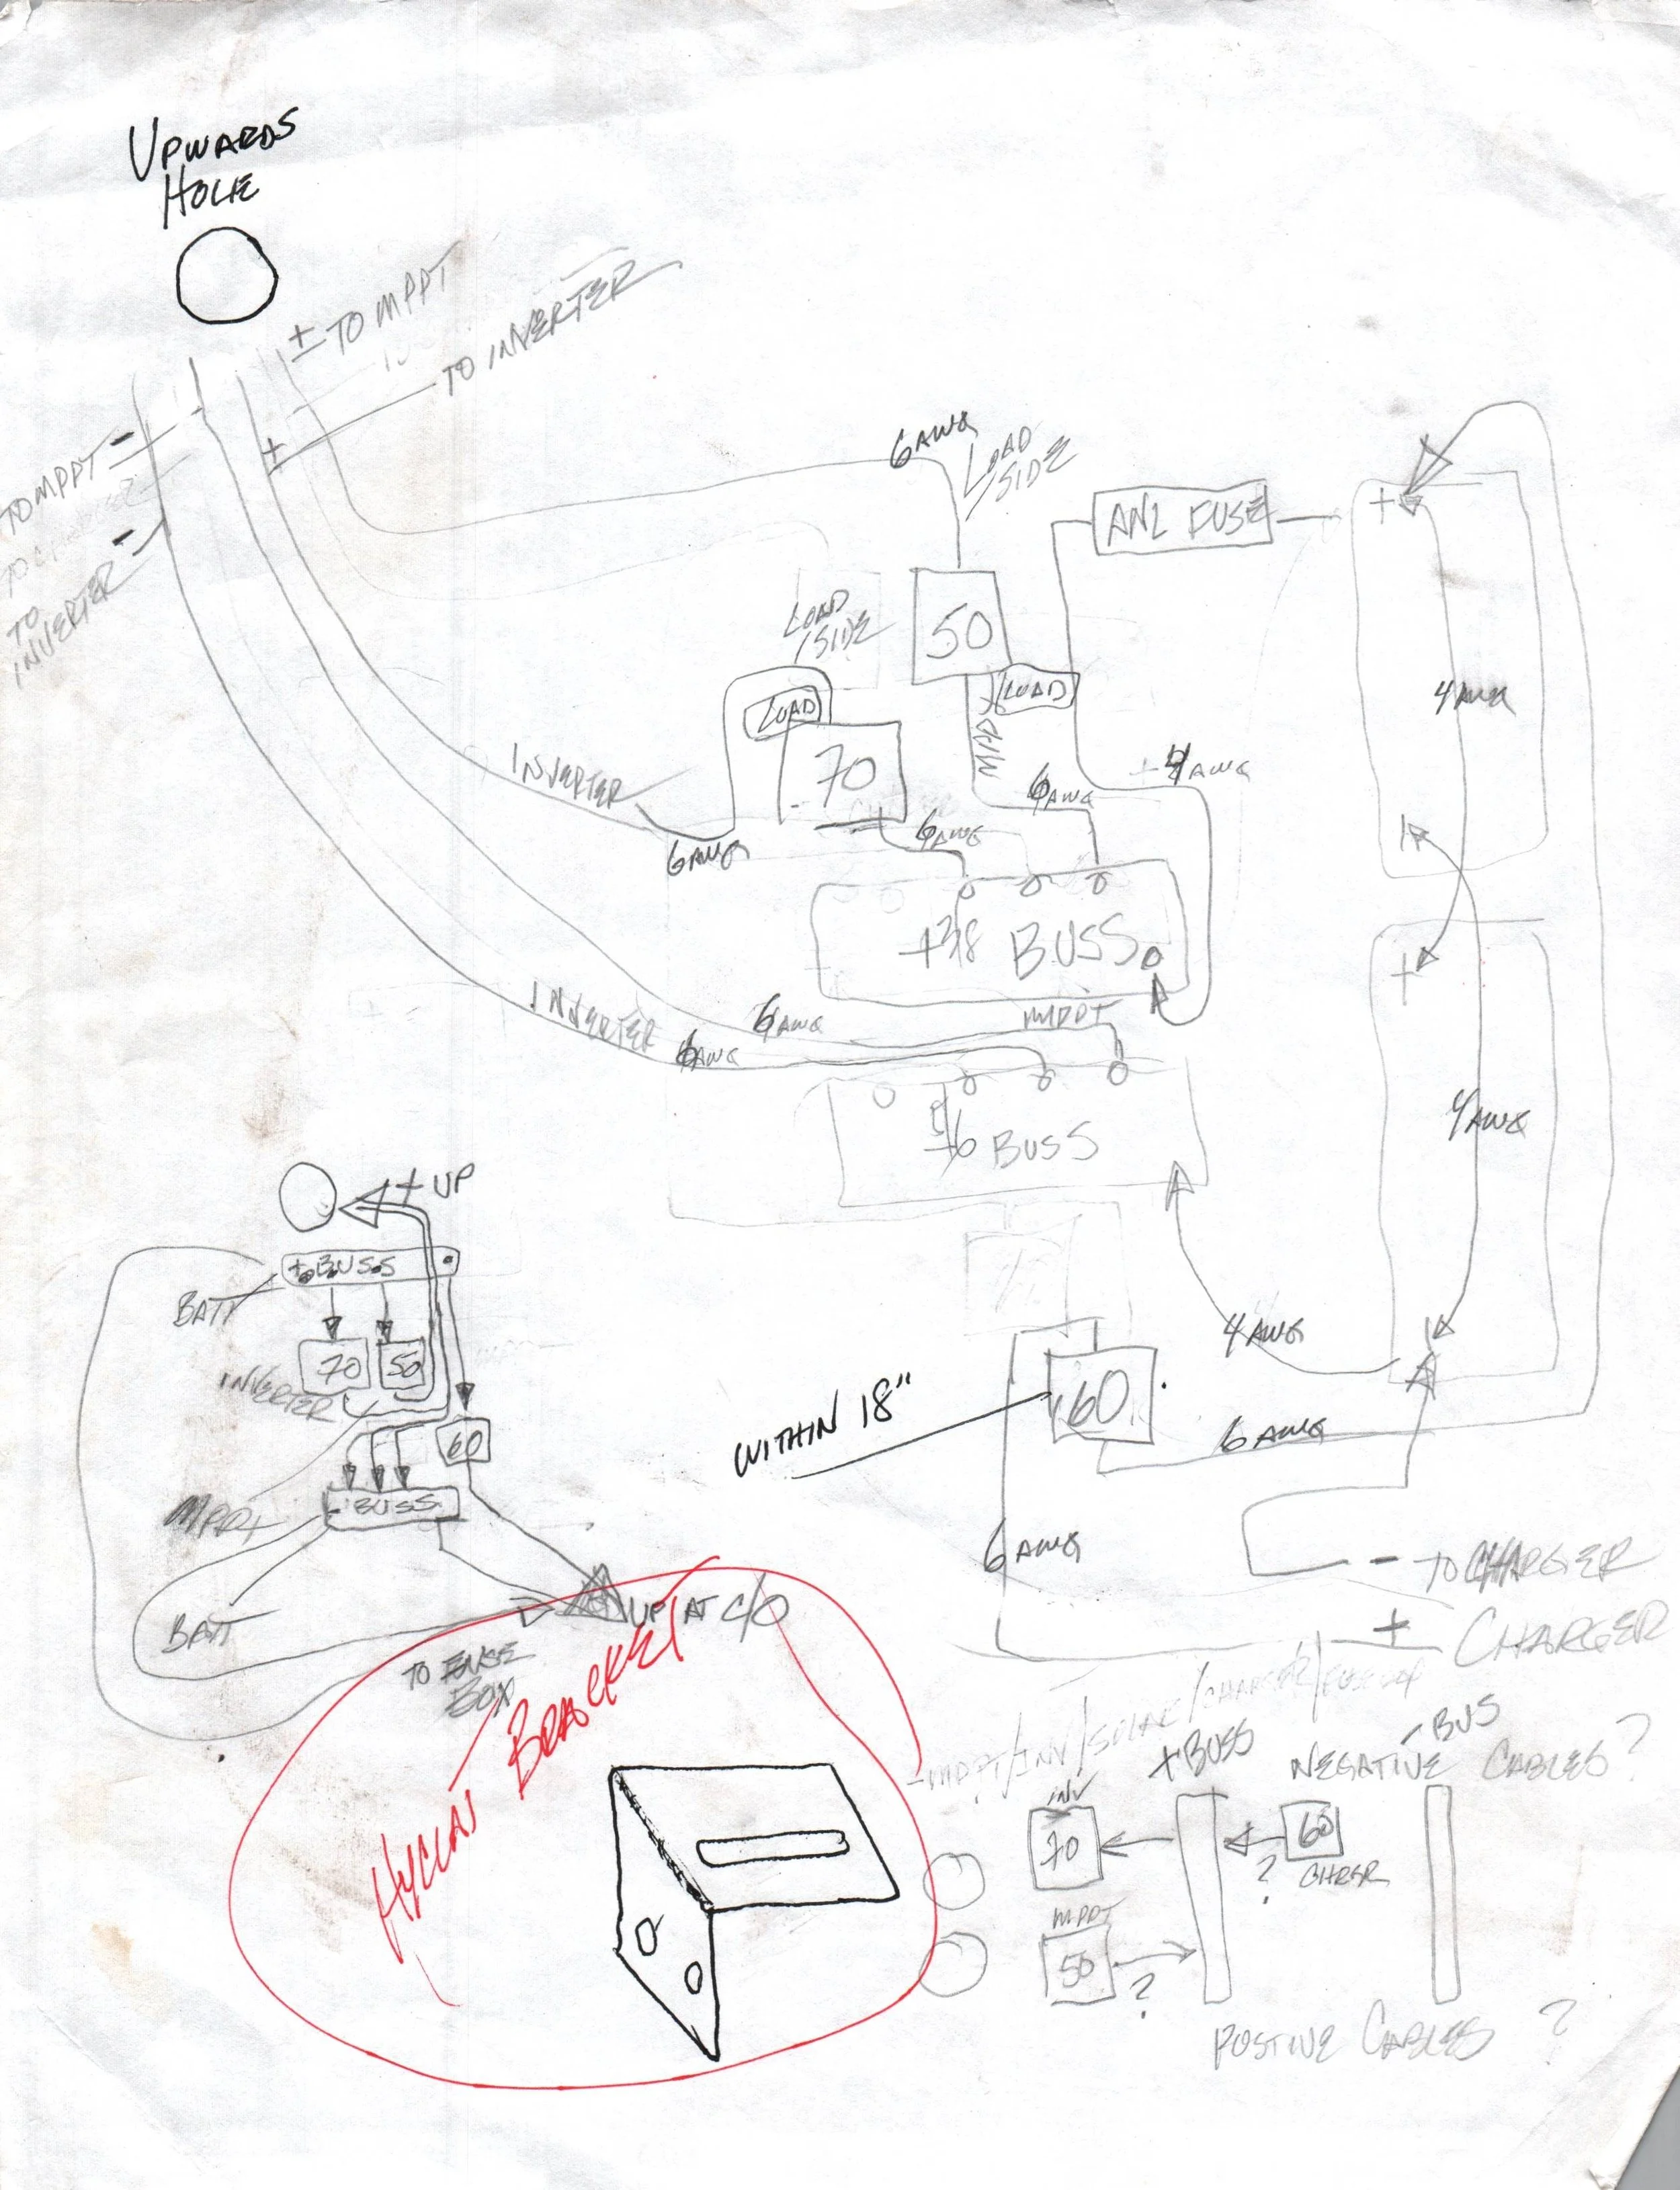 UPWARDS
HOLE
± TO MPPT
+ TO INVERTER
TO MPPT -
TO
INVERTER -
6 AWG
LOAD
SIDE
ANL FUSE
+
50
LOAD
SIDE
LOAD
LOAD
MPPT
4 AWG
70
INVERTER
6 AWG
6 AWG
6 AWG
4 AWG
+ 3/8 BUSS
+
INVERTER
6 AWG
6 AWG
MPPT
BUSS
4 AWG
+ UP
+ BUSS
BATT
70
50
INVERTER
60
MPPT
- BUSS
BATT
UP AT C/O
TO FUSE
BOX
4 AWG
WITHIN 18"
60
6 AWG
6 AWG
- TO CHARGER
+ CHARGER
BRACKET
-MPPT/INV/SOLAR/CHARGER/
+ BUSS
- BUS
NEGATIVE CABLES?
INV
70
60
CHRGR
?
MPPT
50
?
POSTIVE CABLES ?